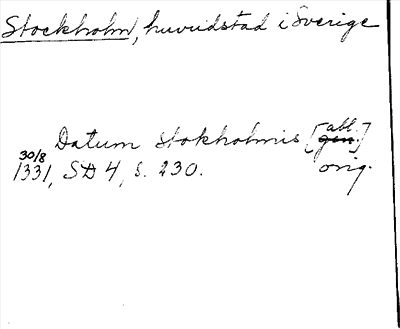 Stockholm, huvudstad i Sverige
Datum Stokholmis [abl.]
30/8 1331, SD 4, s. 230. orig.